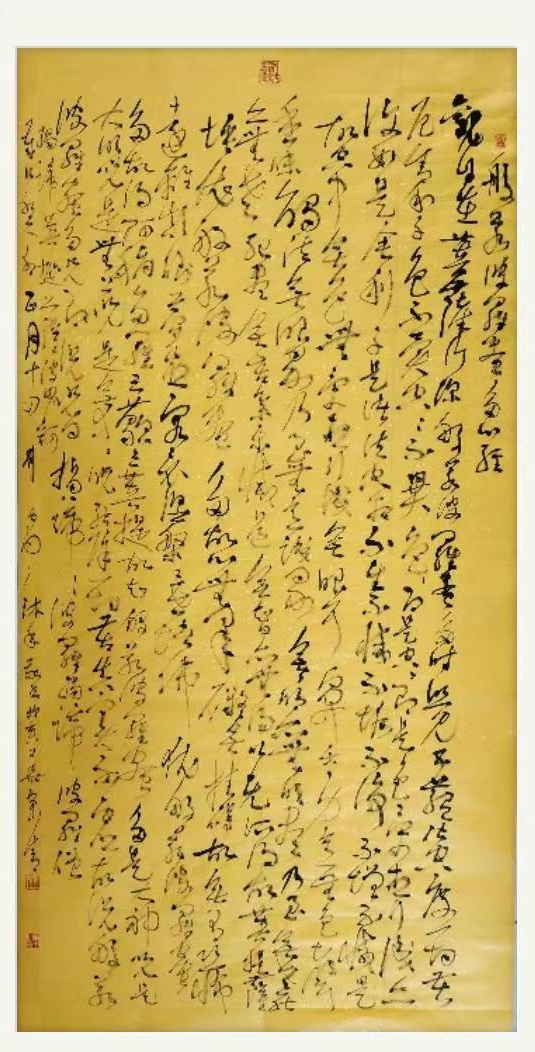 般若波羅蜜多心經
觀自在菩薩行深般若波羅蜜多時照見五蘊皆空度一切苦
厄舍利子色不異空空不異色色即是空空即是色受想行識亦
復如是舍利子是諸法空相不生不滅不垢不淨不增不減是
故空中無色無受想行識無眼耳鼻舌身意無色聲
香味觸法無眼界乃至無意識界無無明亦無無明盡乃至無老死
亦無老死盡無苦集滅道無智亦無得以無所得故菩提薩
埵依般若波羅蜜多故心無罣礙無罣礙故無有恐怖
遠離顛倒夢想究竟涅槃三世諸佛依般若波羅蜜
多故得阿耨多羅三藐三菩提故知般若波羅蜜多是大神咒是
大明咒是無上咒是無等等咒能除一切苦真實不虛故說般若
波羅蜜多咒即說咒曰揭諦揭諦波羅揭諦波羅僧
揭諦菩提薩婆訶
正月十四日 沐手敬書於